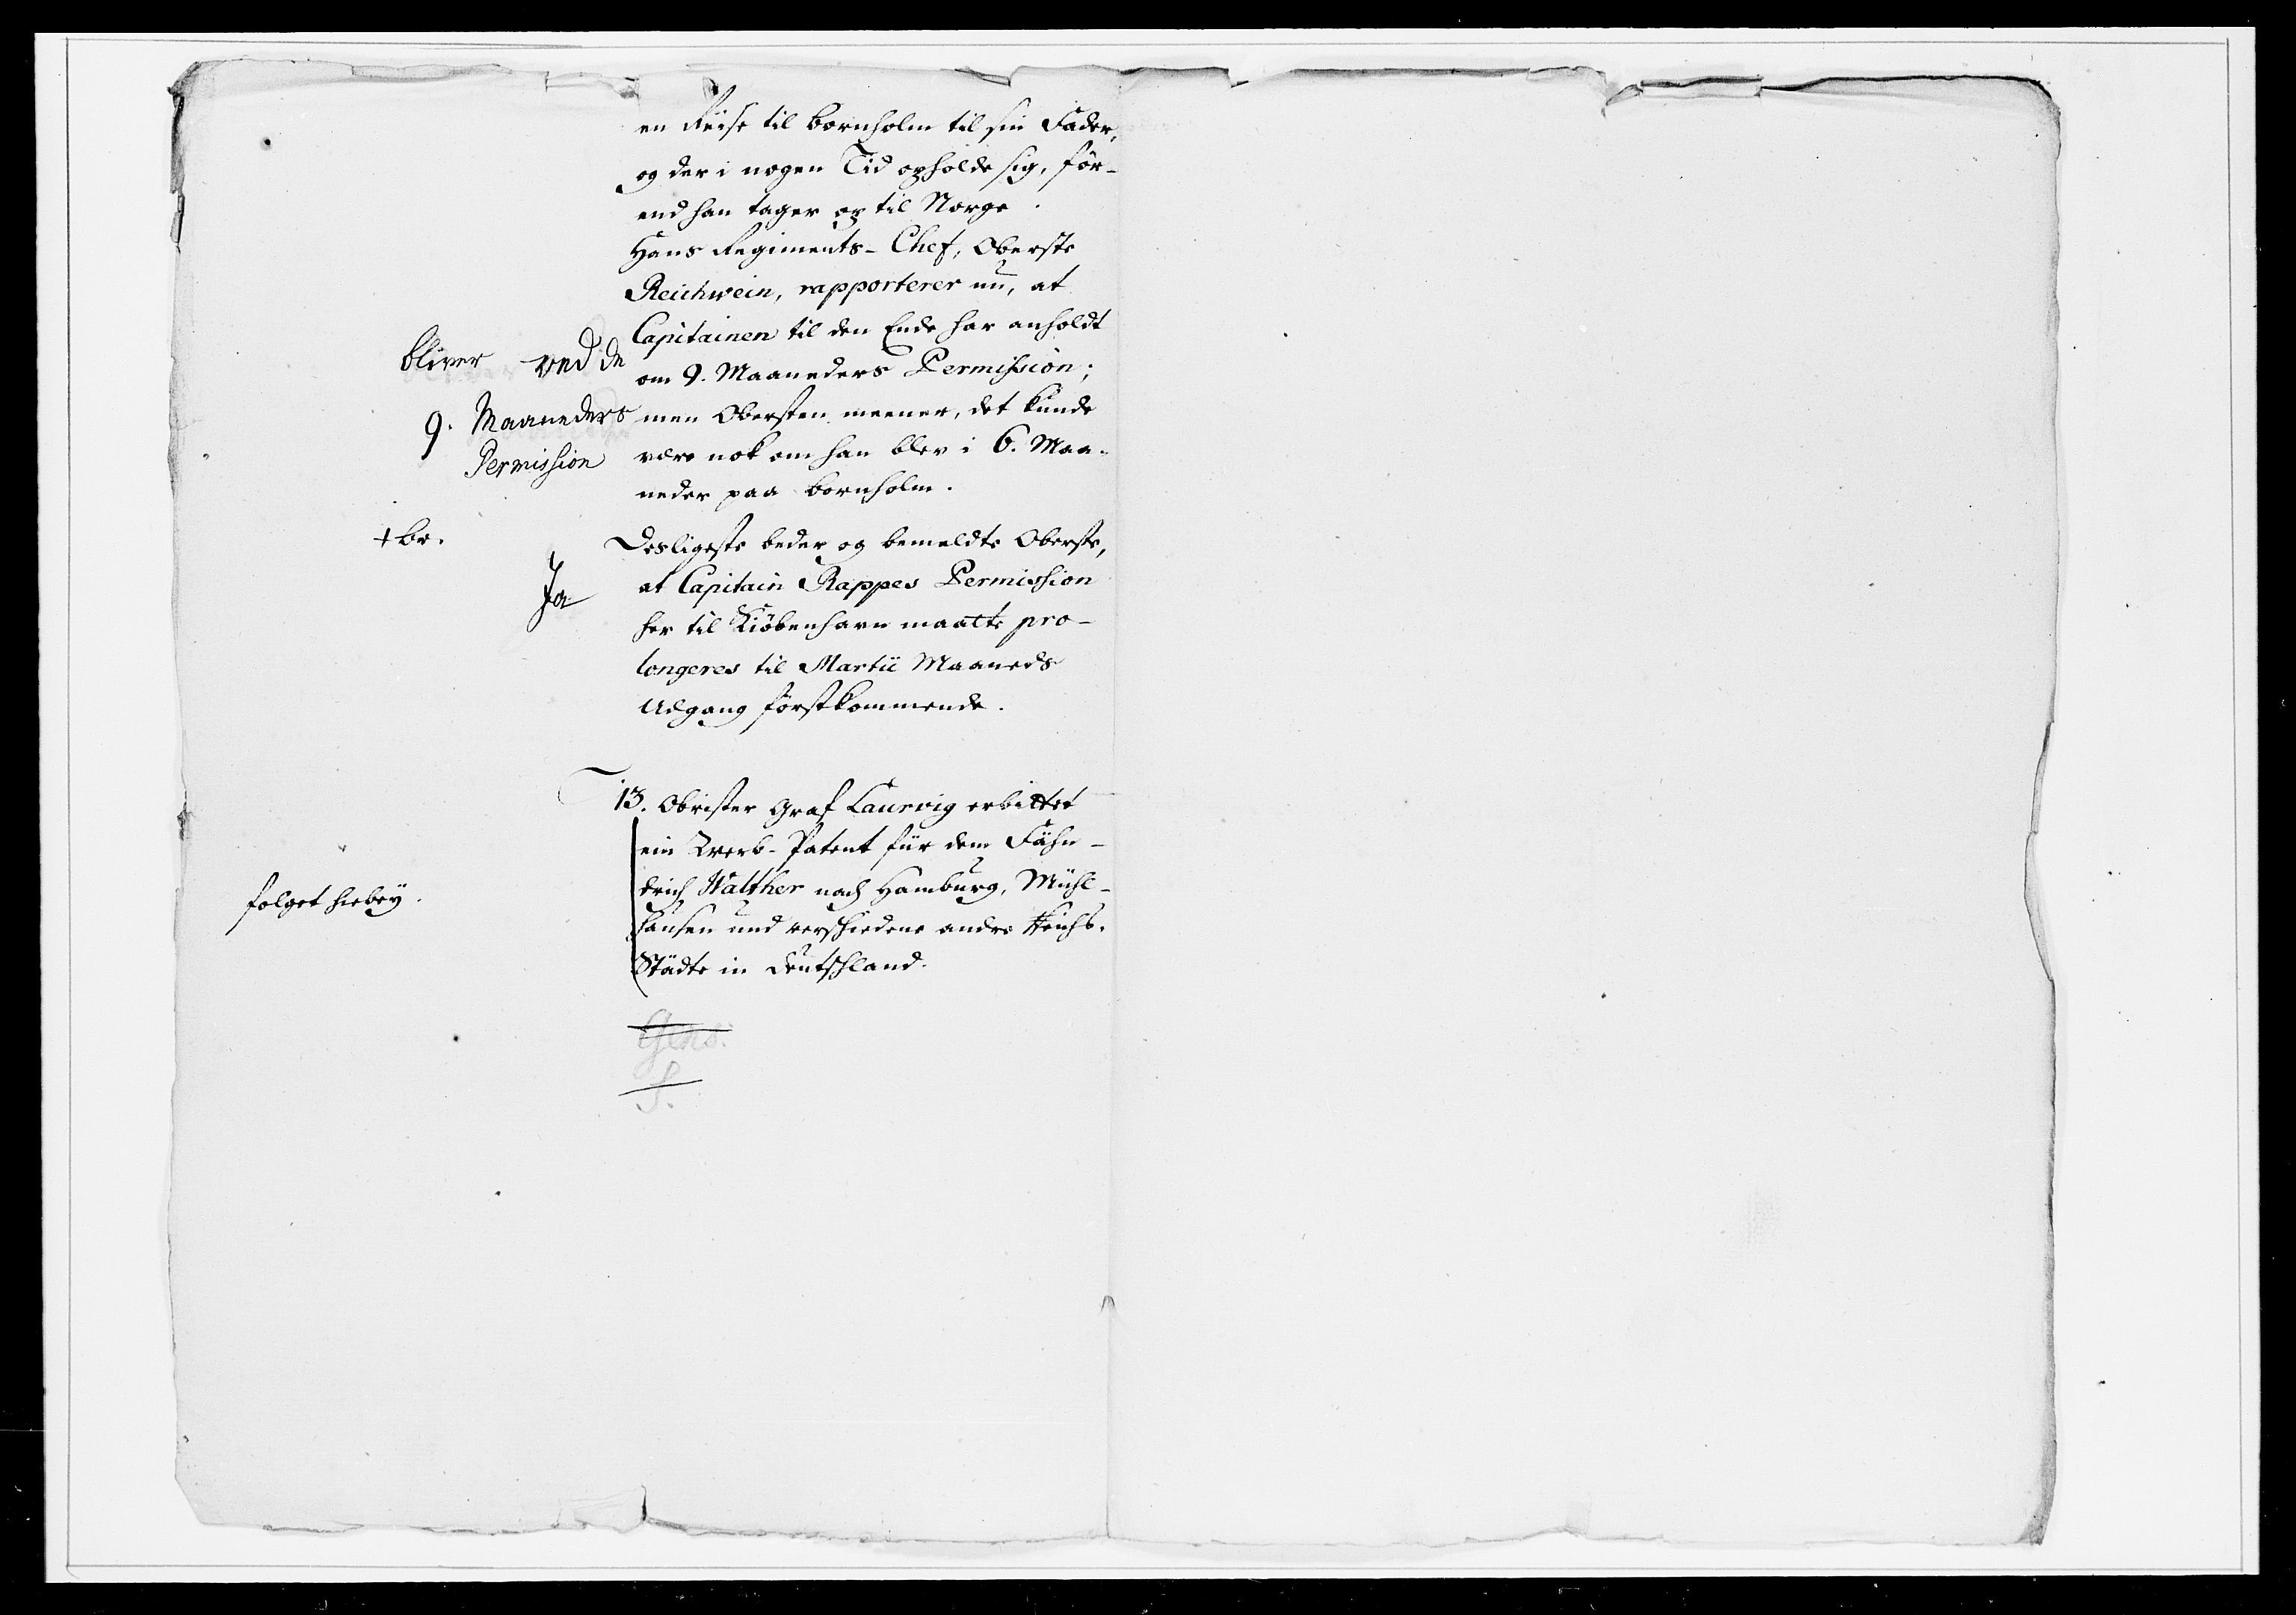 en Reise til Bornholm til sin Fader,
og der i nogen Tid opholde sig,för-
end han tager op til Norge.
Hans Regiments-Chef, Oberste
Reichwein, rapporterer nu, at
Capitainen til den Ende har anholdt
om 9. Maaneders Permission;
men Obersten meener, det kunde
være nok om han blev i 6. Maa-
neder paa Bornholm.
bliver ved de
9. Maaneders
Permission
Desligeste beder og bemeldte Oberste,
at Capitain Rappes Permission
her til Kiöbenhavn maatte pro-
longeres til Martii Maaneds
Udgang förstkommende.
+ br.
Ja
13. Obrister Graf Laurvig erbittet
ein Werb-Patent für dem Fähn-
drich Walther nach Hamburg, Mühl-
hausen und verschiedene andre Reichs-
Städte in Deutschland.
folget hiebey.